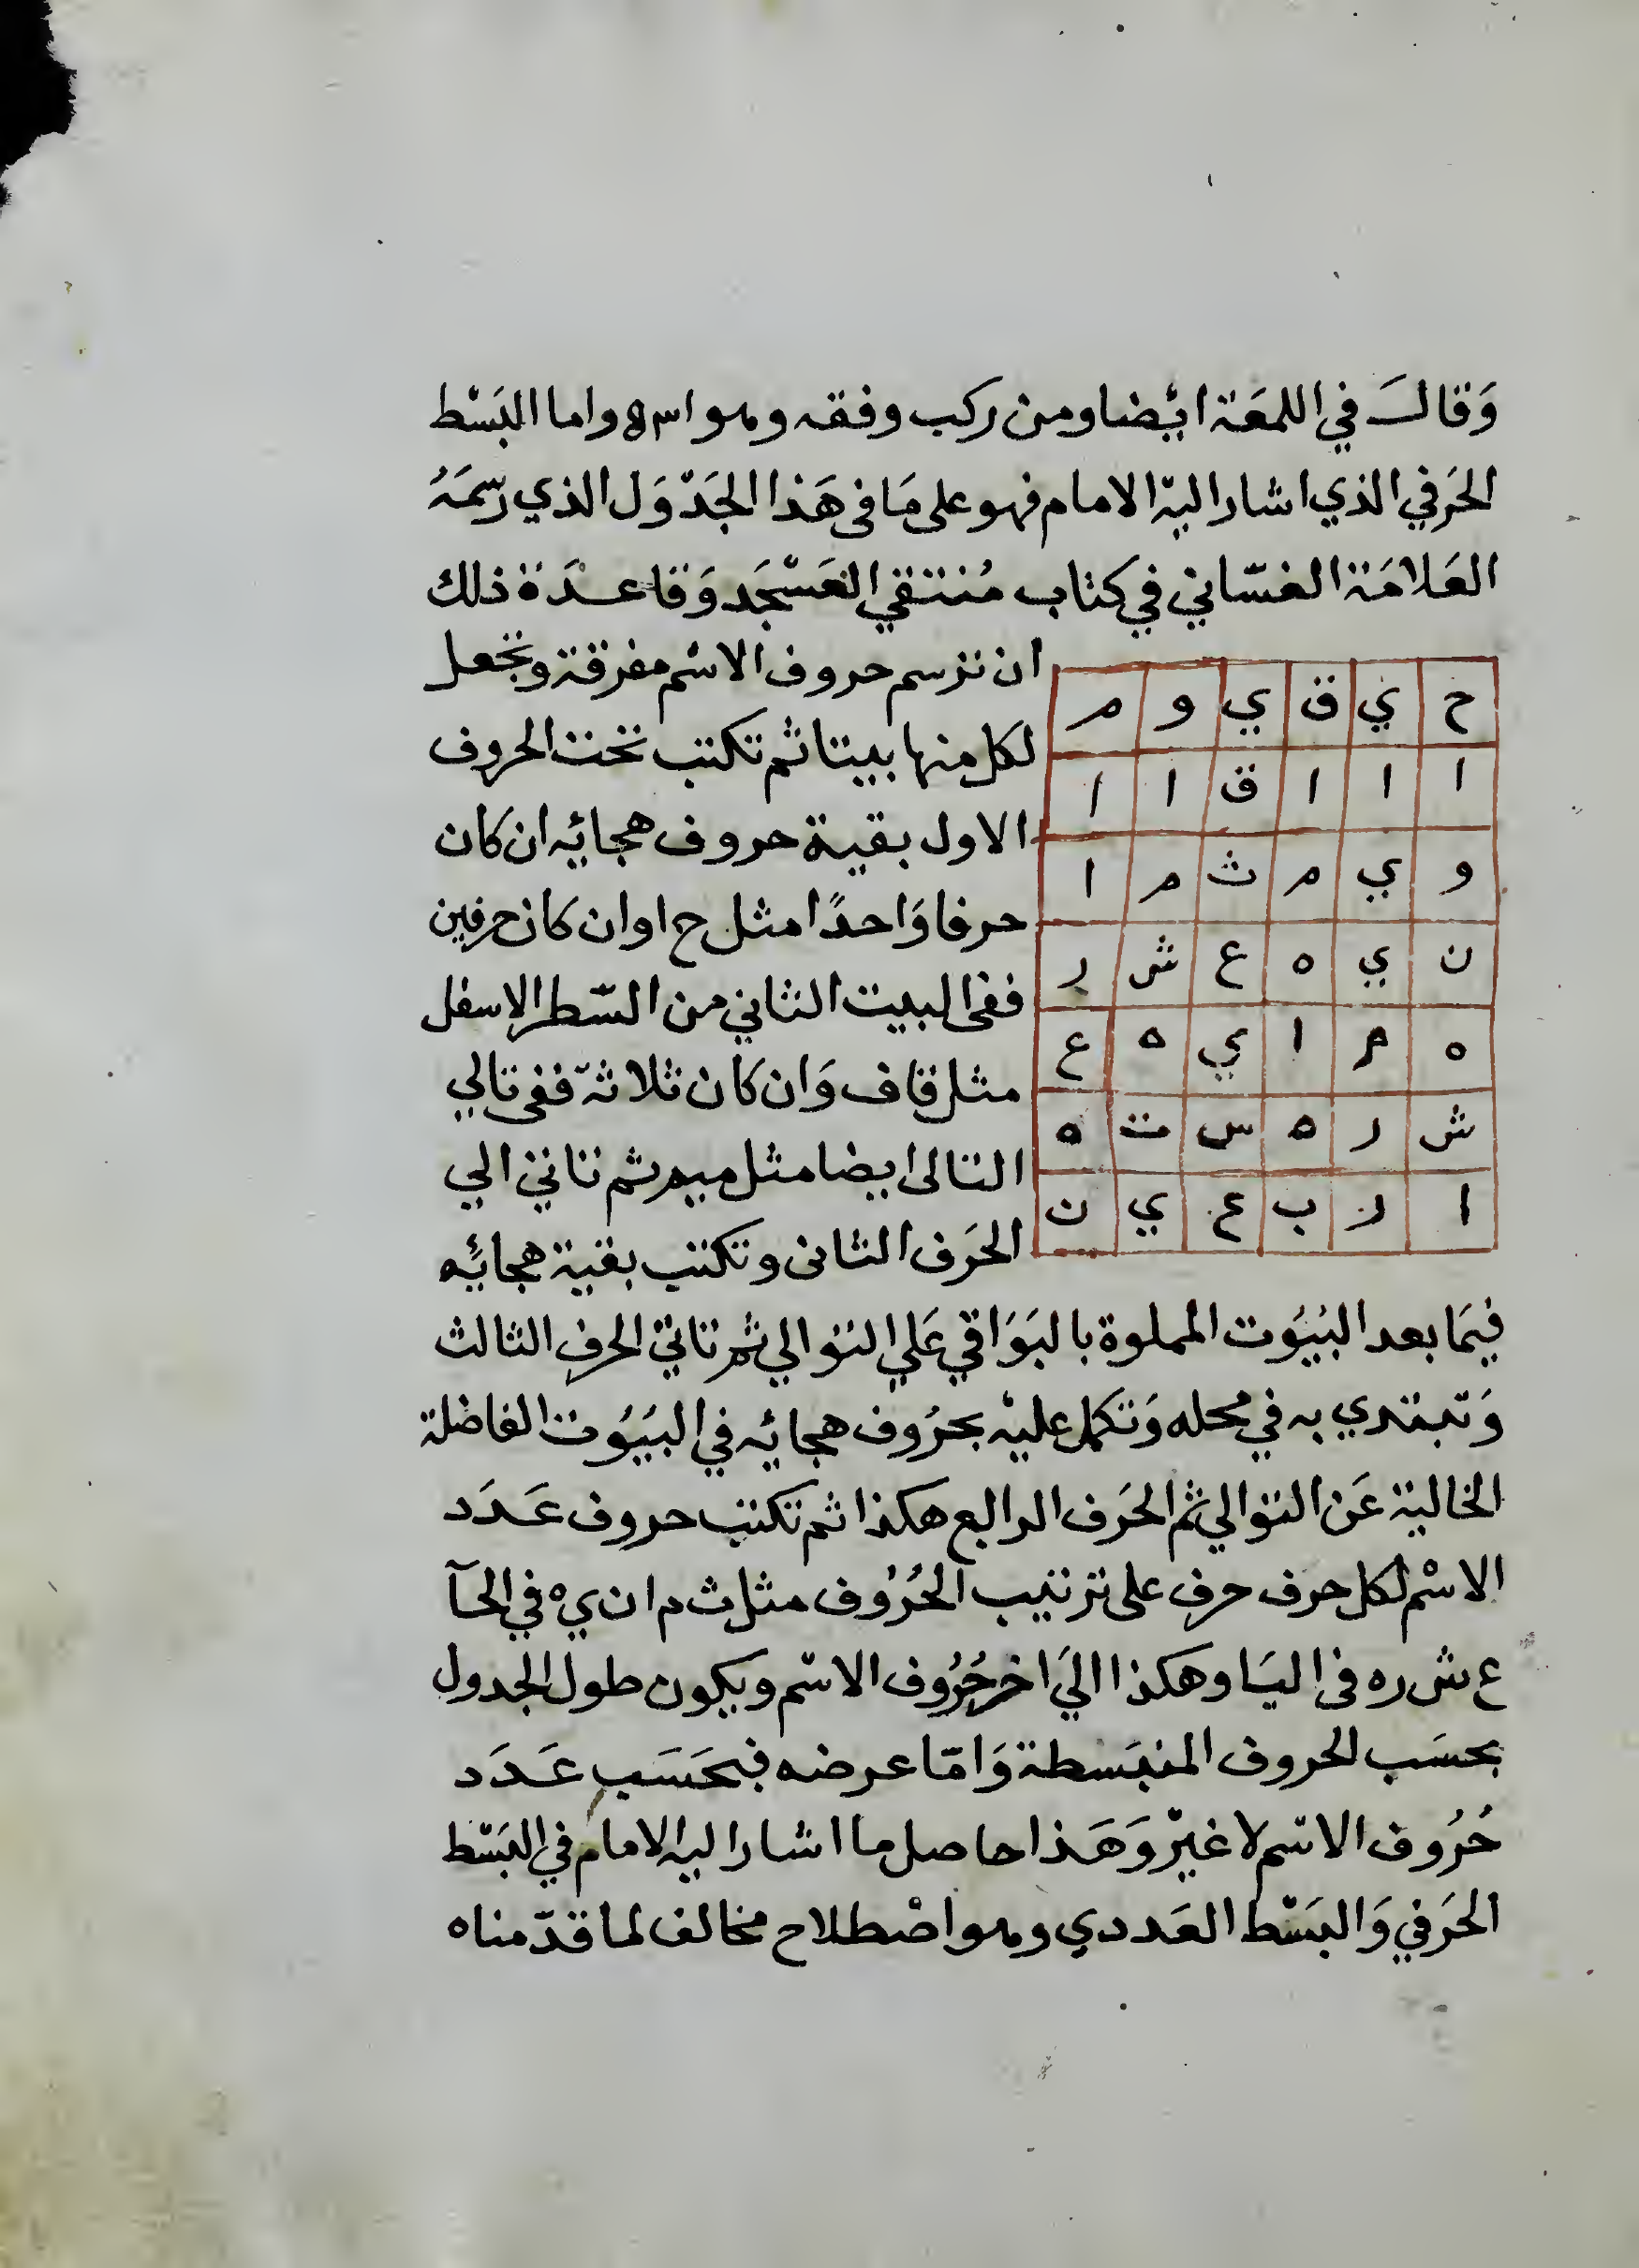 وَقالَ في اللمعَة ايْضا ومن ركب وفقه وهو اسم واما البَسْط
الحَرفي الذي اشار اليْه الامام فهو على مَا فى هَذا الجَدْوَل الذي رسّمَهُ
العَلامَة الغسّاني في كتاب مُنتقي العَسْجَد وَقاعدَة ذلك
ان ترسم حروف الاسْم مفرقة وتجعل
لكل منها بيتا ثم تكتب تحت الحروف
الاول بقية حروف هجائه ان كان
حرفا وَاحدًا مثل ح ا وان كان حرفين
ففى البيت الثاني من السّطر الاسفل
مثل قاف وَان كان ثلاثة ففى تالي
التالى ايضا مثل ميم ثم تاتي الي
الحَرف الثانى وتكتب بقية هجائِه
ح ي ق ي و م
ا ا ا ق ا ا
و ي م ث م ا
ن ي ه ع ش ر
ه م ا ي ه ع
ش ر ه س ت ه
ا ر ب ع ي ن
فيمَا بعد البُيُوت المملوة بالبَوَاقي عَلي التوالي ثم تاتيْ الحرف الثالث
وَتبتدي به في محله وَتكمل عليْه بحرُوف هجائه في البيُوت الفاضلة
الخالية عَن التوالي ثم الحَرف الرابع هكذا ثم تكتب حروف عَدَد
الاسْم لكل حرف حرف على ترتيب الحُرُوف مثل ث م ا ن ي ه في الحآ
ع ش ر ه فى اليَا وهكذا اليَ اخر حُرُوف الاسْم ويكون طول الجدول
بحسَب الحروف المنبَسطة وَامّا عرضه فبحَسَب عَدَد
حُرُوف الاسْم لا غيرْ وَهَذا حاصل ما اشار اليه الامام في البَسْط
الحَرفي وَالبَسْط العَددي وهو اصْطلاح مخالف لما قدّمناه